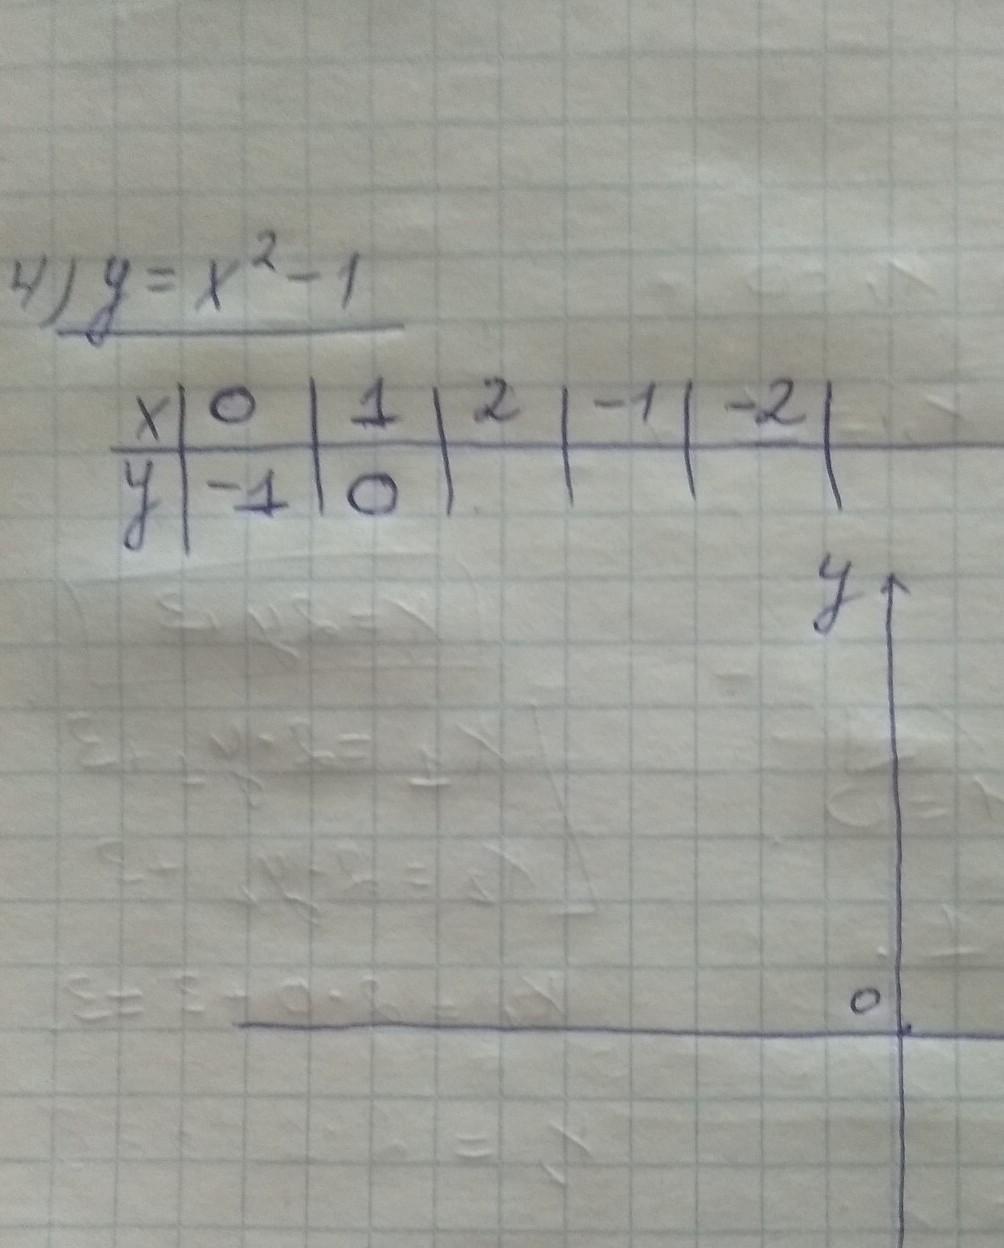 4) y = x² - 1
x | 0 | 1 | 2 | -1 | -2 |
y | -1 | 0 | | | |
y
0